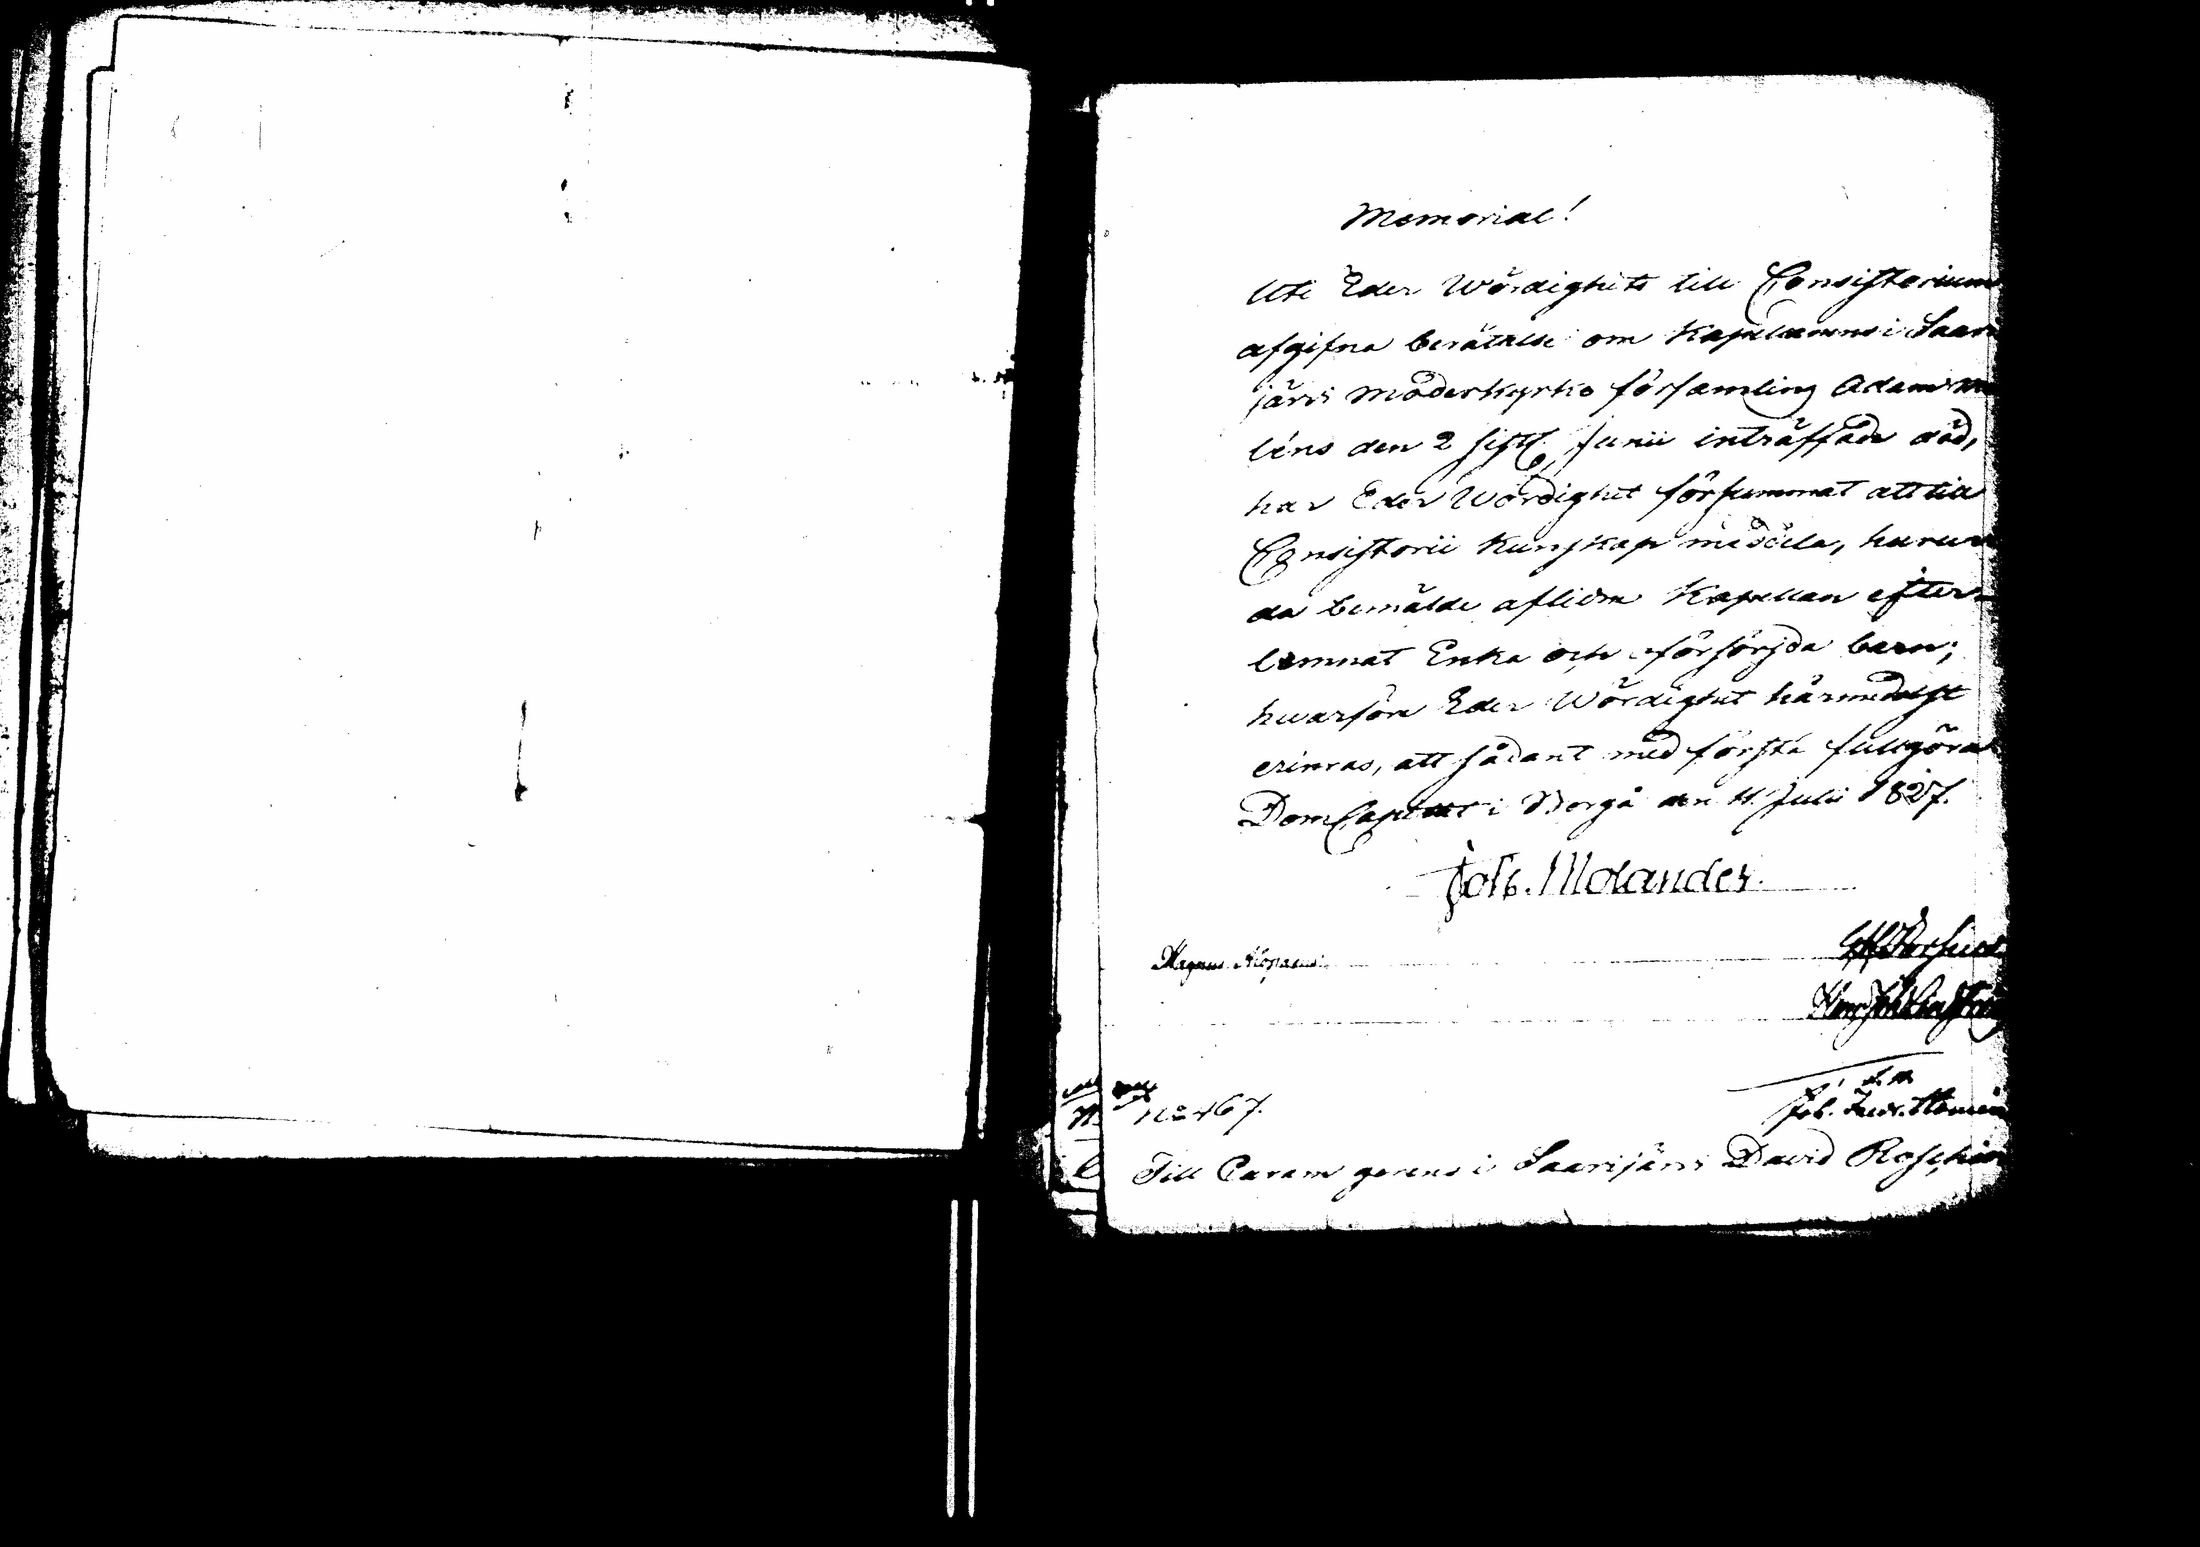 Memorial!
Uti Eder Wördighets till Consistorium
afgifna berättelse om Kapellanens i Saari
järvi Moderkyrko församling Adam
léns den 2 sistl. Junii inträffade död,
har Eder Wördighet försummat att till
Consistorii kunskap meddela, huru
da bemälde aflidne Kapellan efter-
lemnat Enka och oförsörjda barn;
hvarföre Eder Wördighet härmedelst
erinras, att sådant med första fullgöra
DomCapitlet i Borgå den 11 Julii 1827.
Joh. Molander.
Magnus Alopaeus.
No 467.
Till Curam gerens i Saarijärvi David Roschier